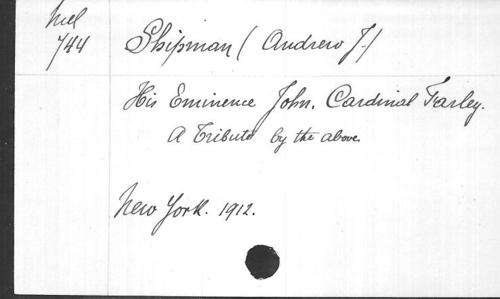 Mel
744
Shipman (Andrew J.)
His Eminence John, Cardinal Farley.
A Tribute by the above.
New York. 1912.